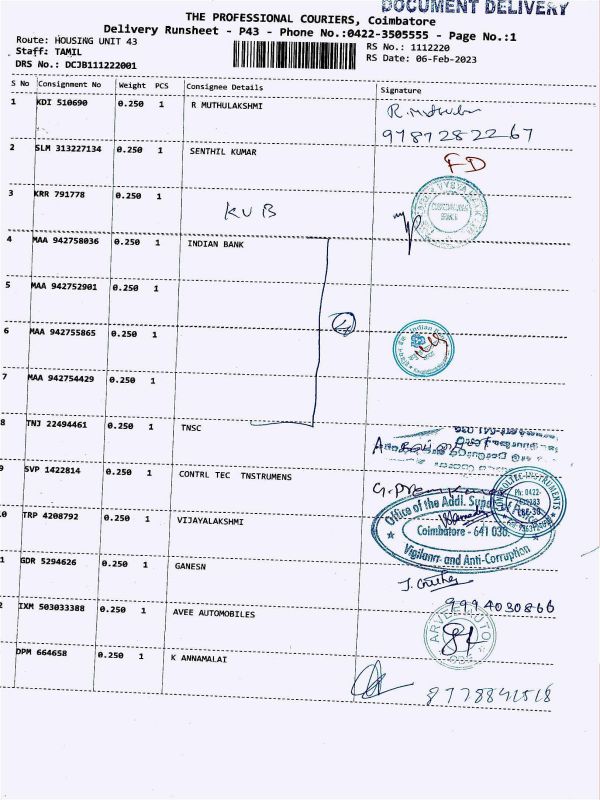 DOCUMENT DELIVERY
THE PROFESSIONAL COURIERS, Coimbatore
Delivery Runsheet - P43 - Phone No.:0422-3505555 - Page No.:1
Route: HOUSING UNIT 43
RS No.: 1112220
Staff: TAMIL
RS Date: 06-Feb-2023
DRS No.: DCJB111222001
S No Consignment No Weight PCS Consignee Details Signature
1 KDI 510690 0.250 1 R MUTHULAKSHMI
9787282267
2 SLM 313227134 0.250 1 SENTHIL KUMAR FD
3 KRR 791778 0.250 1 KVB
4 MAA 942758036 0.250 1 INDIAN BANK
5 MAA 942752901 0.250 1
6 MAA 942755865 0.250 1 4
Indian
7 MAA 942754429 0.250 1
8 TNJ 22494461 0.250 1 TNSC
9 SVP 1422814 0.250 1 CONTRL TEC TNSTRUMENS
INSTRUMENTS
Ph: 0422-
0 TRP 4208792 0.250 1 VIJAYALAKSHMI
Office of the Addl. Supdt
Coimbatore - 641 030.
Vigilance and Anti-Corruption
1 GDR 5294626 0.250 1 GANESN
9994030866
2 IXM 503033388 0.250 1 AVEE AUTOMOBILES
ARVEE AUTO
DPM 664658 0.250 1 K ANNAMALAI
8778841518